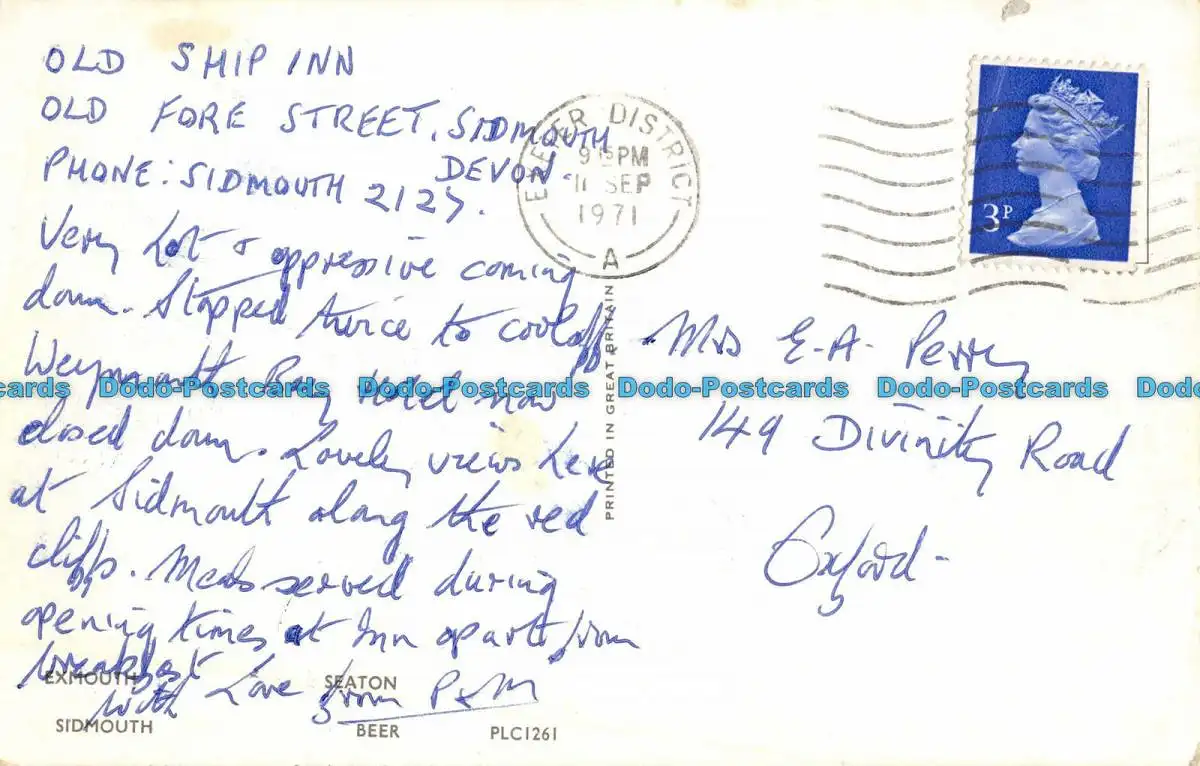 OLD SHIP INN
OLD FORE STREET, SIDMOUTH
DEVON.
PHONE: SIDMOUTH 2127.
Very hot & oppressive coming
down. Stopped twice to cool off
Weymouth Bay Hotel now
closed down. Lovely views here
at Sidmouth along the red
cliffs. Meals served during
opening times at Inn apart from
breakfast
with Love from P & M
EXMOUTH SEATON
SIDMOUTH BEER PLC1261
EXETER DISTRICT
9 15 PM
11 SEP
1971
A
3P
PRINTED IN GREAT BRITAIN
Mrs E.A. Perry
149 Divinity Road
Oxford-
Dodo-Postcards Dodo-Postcards Dodo-Postcards Dodo-Postcards Dodo-Postcards